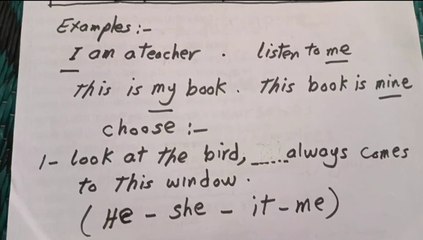 Examples:-
I am a teacher . listen to me
This is my book . This book is mine
choose :-
1- look at the bird, ..... always comes
to this window .
( He - she - it - me )